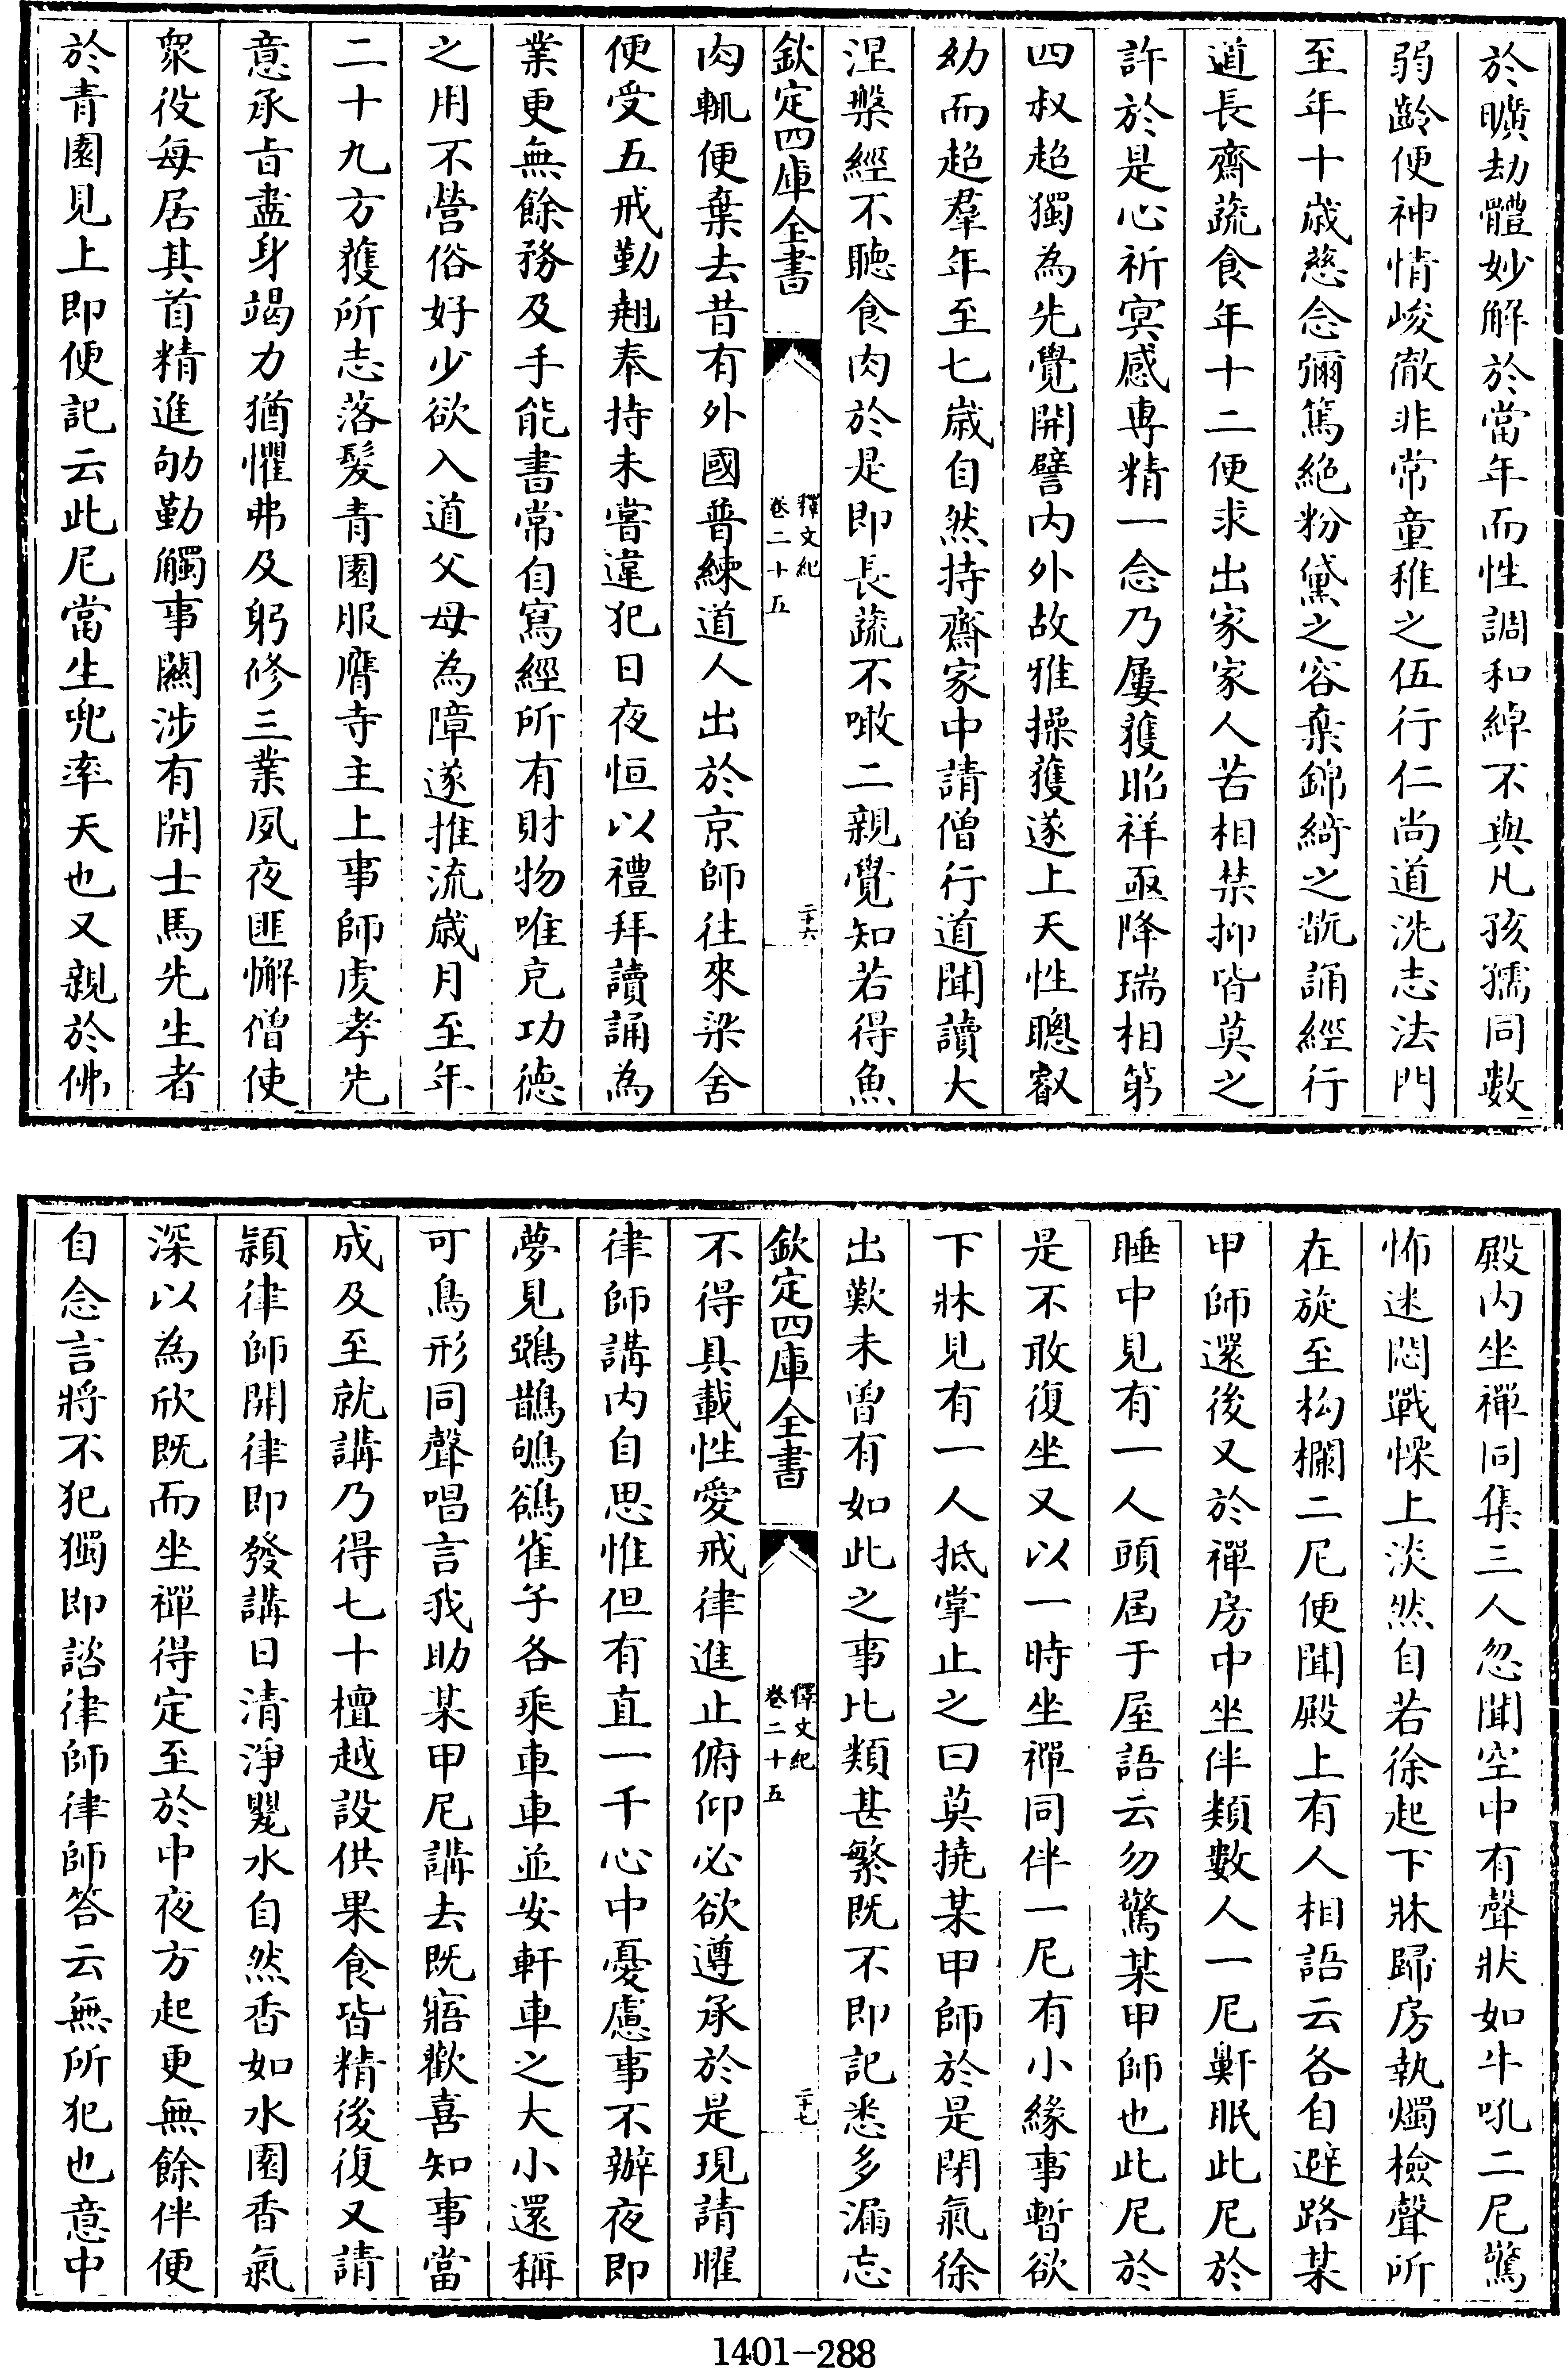 於曠劫體妙解於當年而性調和綽不與凡孩孺同數
弱齡便神情峻徹非常童稚之伍行仁尚道洗志法門
至年十歲慈念彌篤絶粉黛之容棄錦綺之翫誦經行
道長齋蔬食年十二便求出家家人苦相禁抑皆莫之
許於是心祈冥感專精一念乃屢獲昭祥亟降瑞相第
四叔超獨為先覺開譬内外故雅操獲遂上天性聰叡
幼而超羣年至七歲自然持齋家中請僧行道聞讀大
涅槃經不聽食肉於是即長蔬不噉二親覺知若得魚
欽定四庫全書
釋文紀
卷二十五
二十六
肉輒便棄去昔有外國普練道人出於京師往來梁舍
便受五戒勤翹奉持未嘗違犯日夜恒以禮拜讀誦為
業更無餘務及手能書常自寫經所有財物唯充功德
之用不營俗好少欲入道父母為障遂推流歲月至年
二十九方獲所志落髮青園服膺寺主上事師虔孝先
意承旨盡身竭力猶懼弗及躬修三業夙夜匪懈僧使
衆役每居其首精進劬勤觸事關涉有開士馬先生者
於青園見上即便記云此尼當生兜率天也又親於佛
殿内坐禪同集三人忽聞空中有聲狀如牛吼二尼驚
怖迷悶戰慄上淡然自若徐起下牀歸房執燭檢聲所
在旋至枸欄二尼便聞殿上有人相語云各自避路某
甲師還後又於禪房中坐伴類數人一尼鼾眠此尼於
睡中見有一人頭屆于屋語云勿驚某甲師也此尼於
是不敢復坐又以一時坐禪同伴一尼有小緣事暫欲
下牀見有一人抵掌止之曰莫撓某甲師於是閉氣徐
出歎未曾有如此之事比類甚繁既不即記悉多漏忘
欽定四庫全書
釋文紀
卷二十五
二十七
不得具載性愛戒律進止俯仰必欲遵承於是現請曜
律師講内自思惟但有直一千心中憂慮事不辦夜即
夢見鵶鵲鴝鵒雀子各乘車車並安軒車之大小還稱
可鳥形同聲唱言我助某甲尼講去既寤歡喜知事當
成及至就講乃得七十檀越設供果食皆精後復又請
頴律師開律即發講日清淨甖水自然香如水園香氣
深以為欣既而坐禪得定至於中夜方起更無餘伴便
自念言將不犯獨即諮律師律師答云無所犯也意中
1401-288